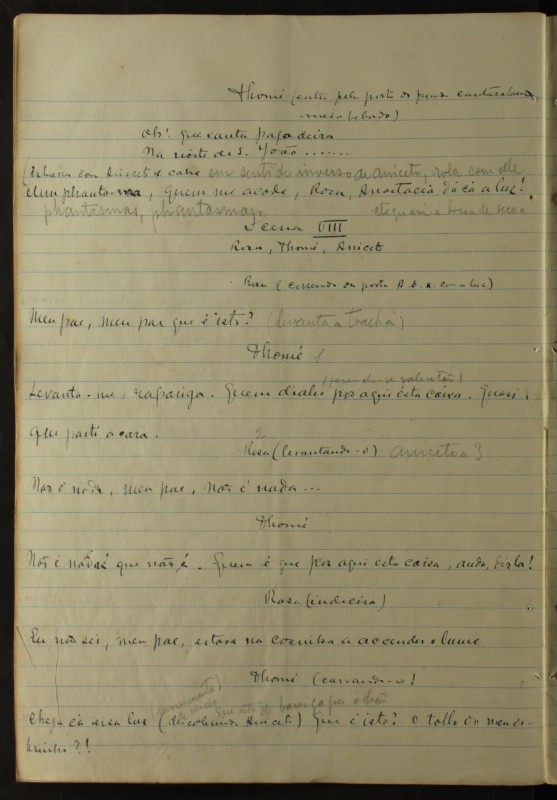 Thomé (entra pela porta do fundo cantarolando
meio ebado)
Oh! que santa pagodeira
Na noite de S. João ......
(Esbarra com Aniceto e cahe em sentido inverso de aniceto, rola com elle
Um phantasma, quem me acode, Rosa, Anastacia dá cá a luz!
phantasmas, phantasmas,
até quasi a bocca de scena
Scena VIII
Rosa, Thomé, Aniceto
Rosa (correndo da porta D. B. com a luz)
Meu pae, meu pae que é isto? (levanta a
Thomé 1
(fazendo-se valentão)
Levanta-me, rapariga. Quem diabo poz aqui esta coisa. Quasi
que parti a cara.
2
Rosa (levantando-o) aniceto a 3
Não é nada, meu pae, não é nada...
Thomé
Não é nada é que não é. Quem é que poz aqui esta coisa, anda, dirla!
Rosa (indecisa)
Eu não sei, meu pae, estava na cozinha a accender o lume
Thomé (curvando-se)
(novamente)
que está de barriga para o chão
Chega cá essa luz (descobrindo Aniceto) Que é isto? O tollo do men-
?!